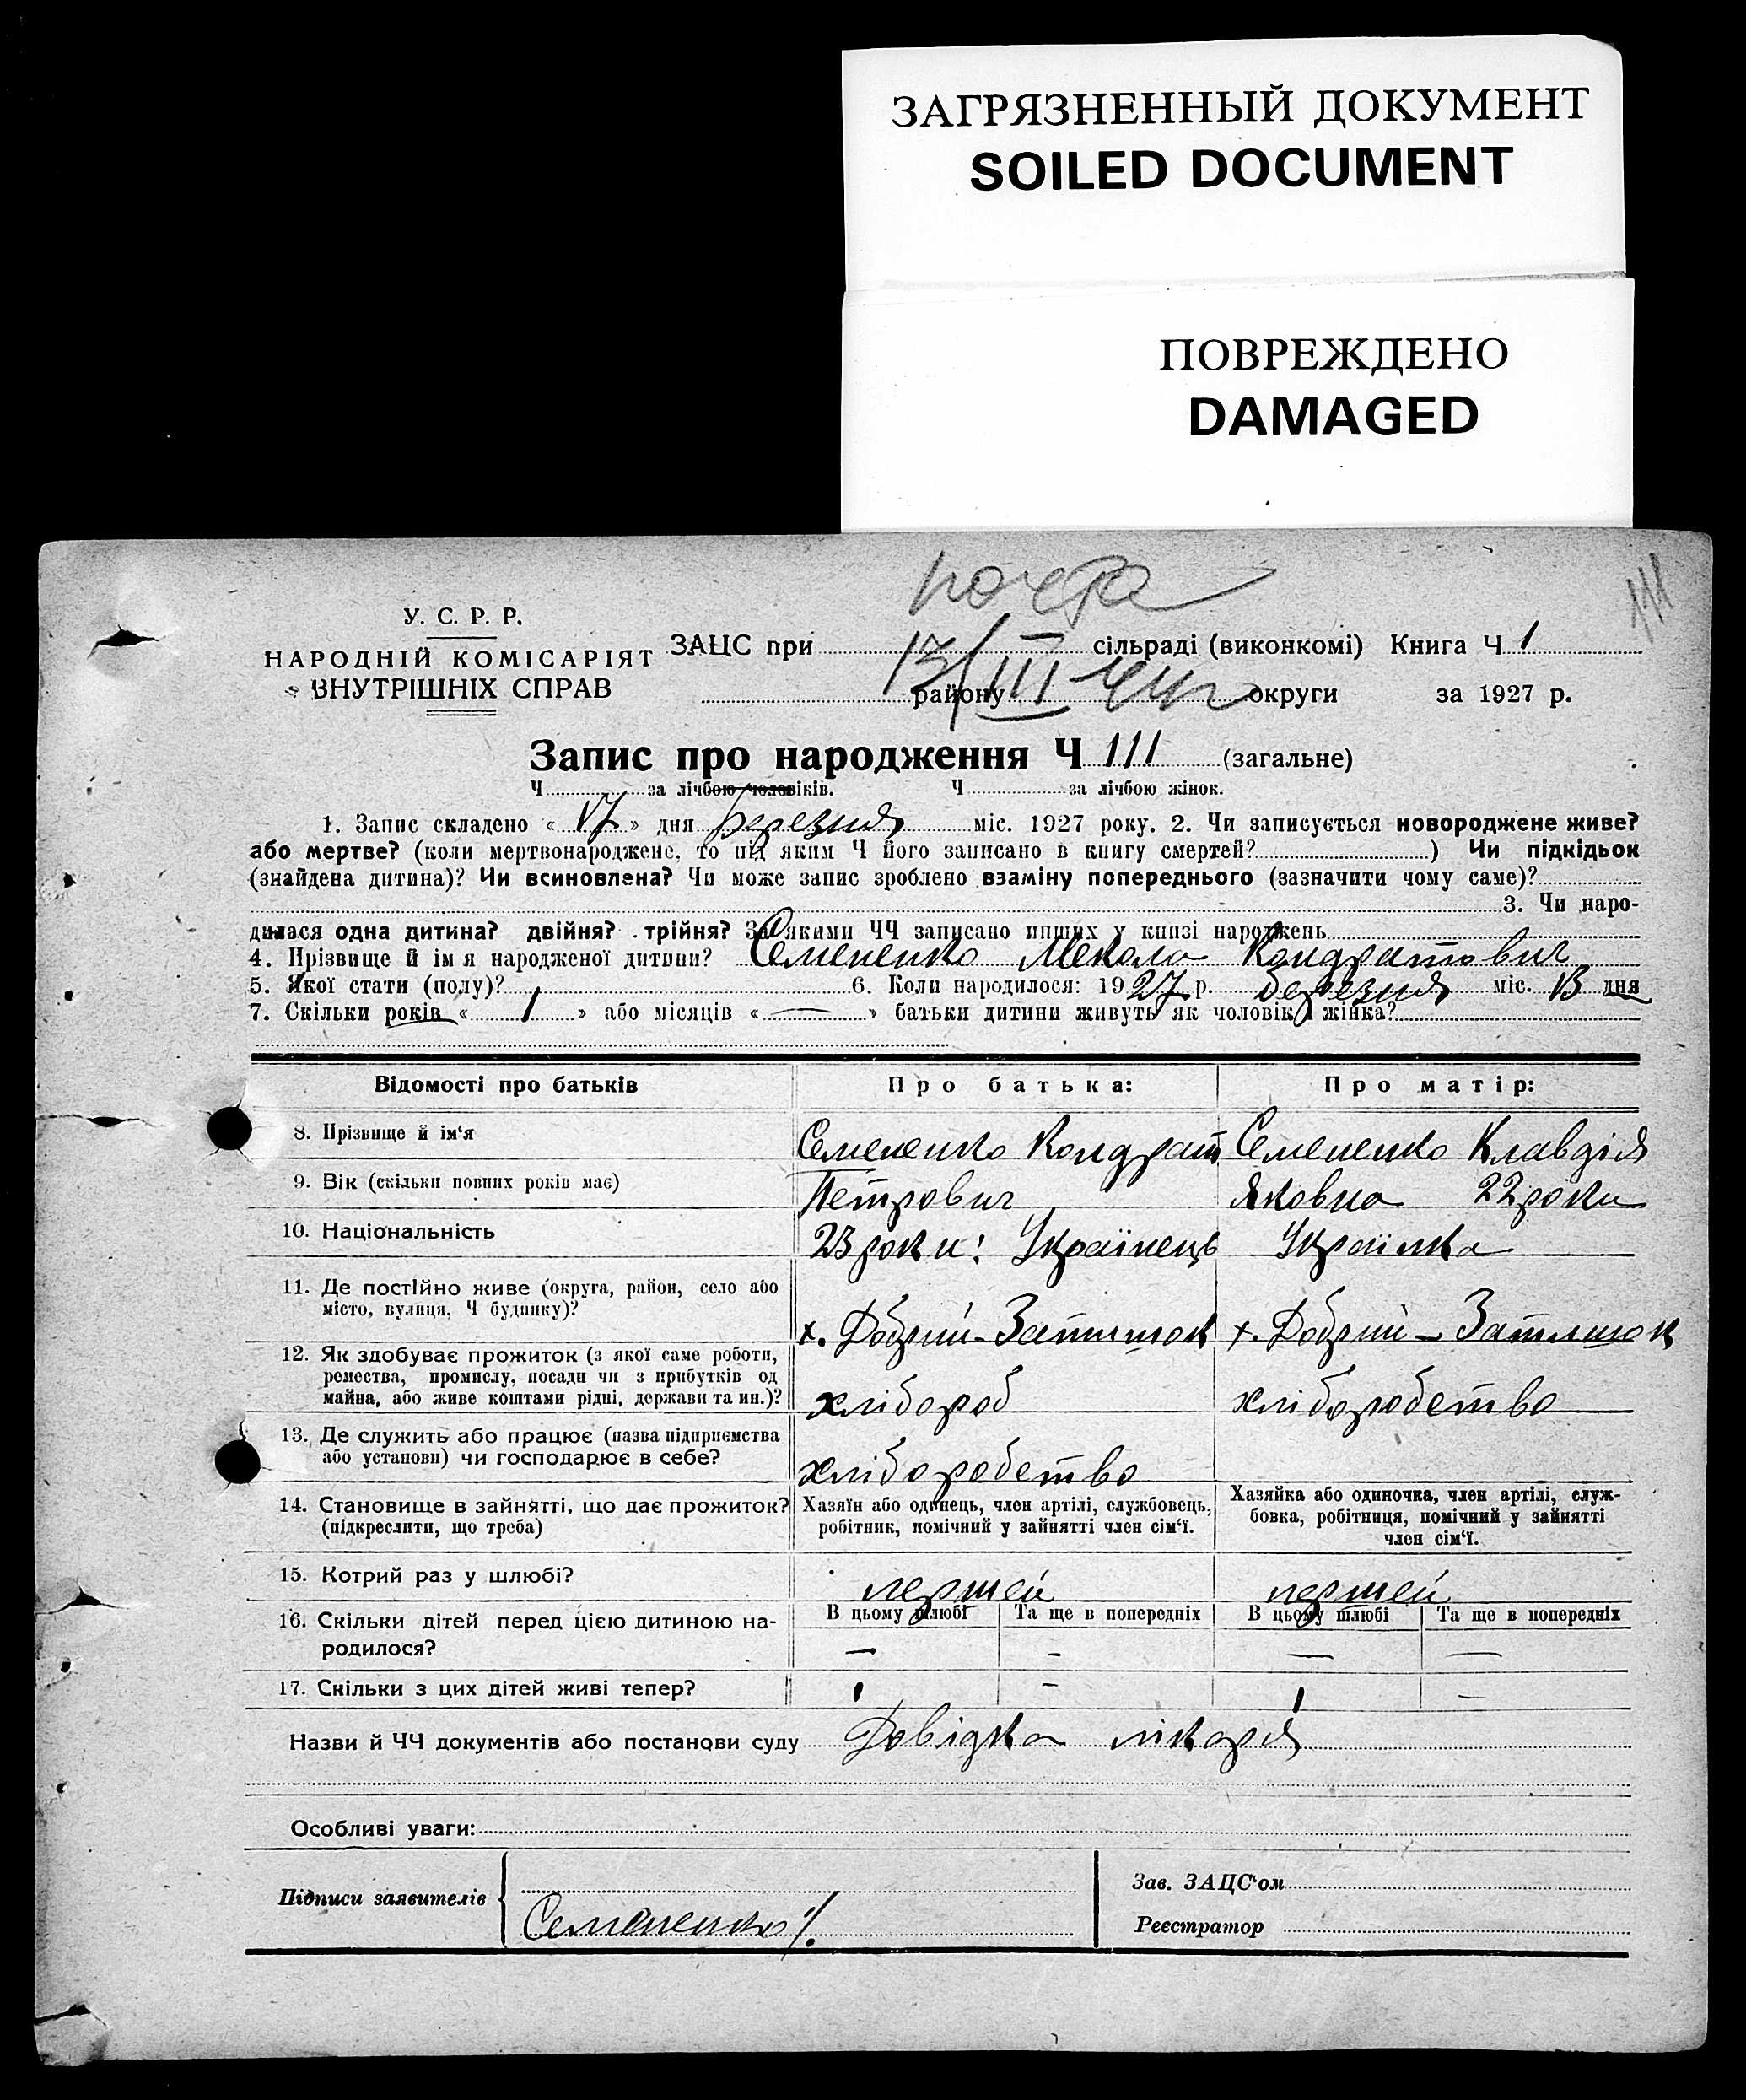 ЗАГРЯЗНЕННЫЙ ДОКУМЕНТ
SOILED DOCUMENT
ПОВРЕЖДЕНО
DAMAGED
111
У. С. Р. Р.
НАРОДНІЙ КОМІСАРІЯТ
ВНУТРІШНІХ СПРАВ
ЗАЦС при сільраді (виконкомі) Книга Ч 1
13/III району округи за 1927 р.
Запис про народження Ч 111 (загальне)
Ч за лічбою чоловіків. Ч за лічбою жінок.
1. Запис складено « 17 » дня Березня міс. 1927 року. 2. Чи записується новороджене живе?
або мертве? (коли мертвонароджене, то під яким Ч його записано в книгу смертей? ) Чи підкідьок
(знайдена дитина)? Чи всиновлена? Чи може запис зроблено взаміну попереднього (зазначити чому саме)?
3. Чи наро-
дилася одна дитина? двійня? трійня? За якими ЧЧ записано инших у книзі народжень
4. Прізвище й ім я народженої дитини? Семененко Мекола Кондратович
5. Якої стати (полу)? 6. Коли народилося: 1927 р. березня міс. 13 дня
7. Скільки років « 1 » або місяців « — » батьки дитини живуть як чоловік і жінка?
Відомості про батьків Про батька: Про матір:
8. Прізвище й ім‘я Семененко Кондрат Семененко Клавдія
9. Вік (скільки повних років має) Петрович Яковна 22 роки
10. Національність 23 роки: Українець Українка
11. Де постійно живе (округа, район, село або
місто, вулиця, Ч будинку)? х. Добрий-Затишок х. Добрий-Затишок
12. Як здобуває прожиток (з якої саме роботи,
ремества, промислу, посади чи з прибутків од
майна, або живе коштами рідні, держави та ин.)? хлібороб хліборобство
13. Де служить або працює (назва підприємства
або установи) чи господарює в себе? хліборобство
14. Становище в зайнятті, що дає прожиток?
(підкреслити, що треба)
Хазяїн або одинець, член артілі, службовець,
робітник, помічний у зайнятті член сім‘ї.
Хазяйка або одиночка, член артілі, служ-
бовка, робітниця, помічний у зайнятті
член сім‘ї.
15. Котрий раз у шлюбі? першей першей
16. Скільки дітей перед цією дитиною на-
родилося?
В цьому шлюбі Та ще в попередніх В цьому шлюбі Та ще в попередніх
— - — —
17. Скільки з цих дітей живі тепер? 1 - 1 —
Назви й ЧЧ документів або постанови суду Довідка лікаря
Особливі уваги:
Підписи заявителів
Семененко
Зав. ЗАЦС‘ом
Реєстратор